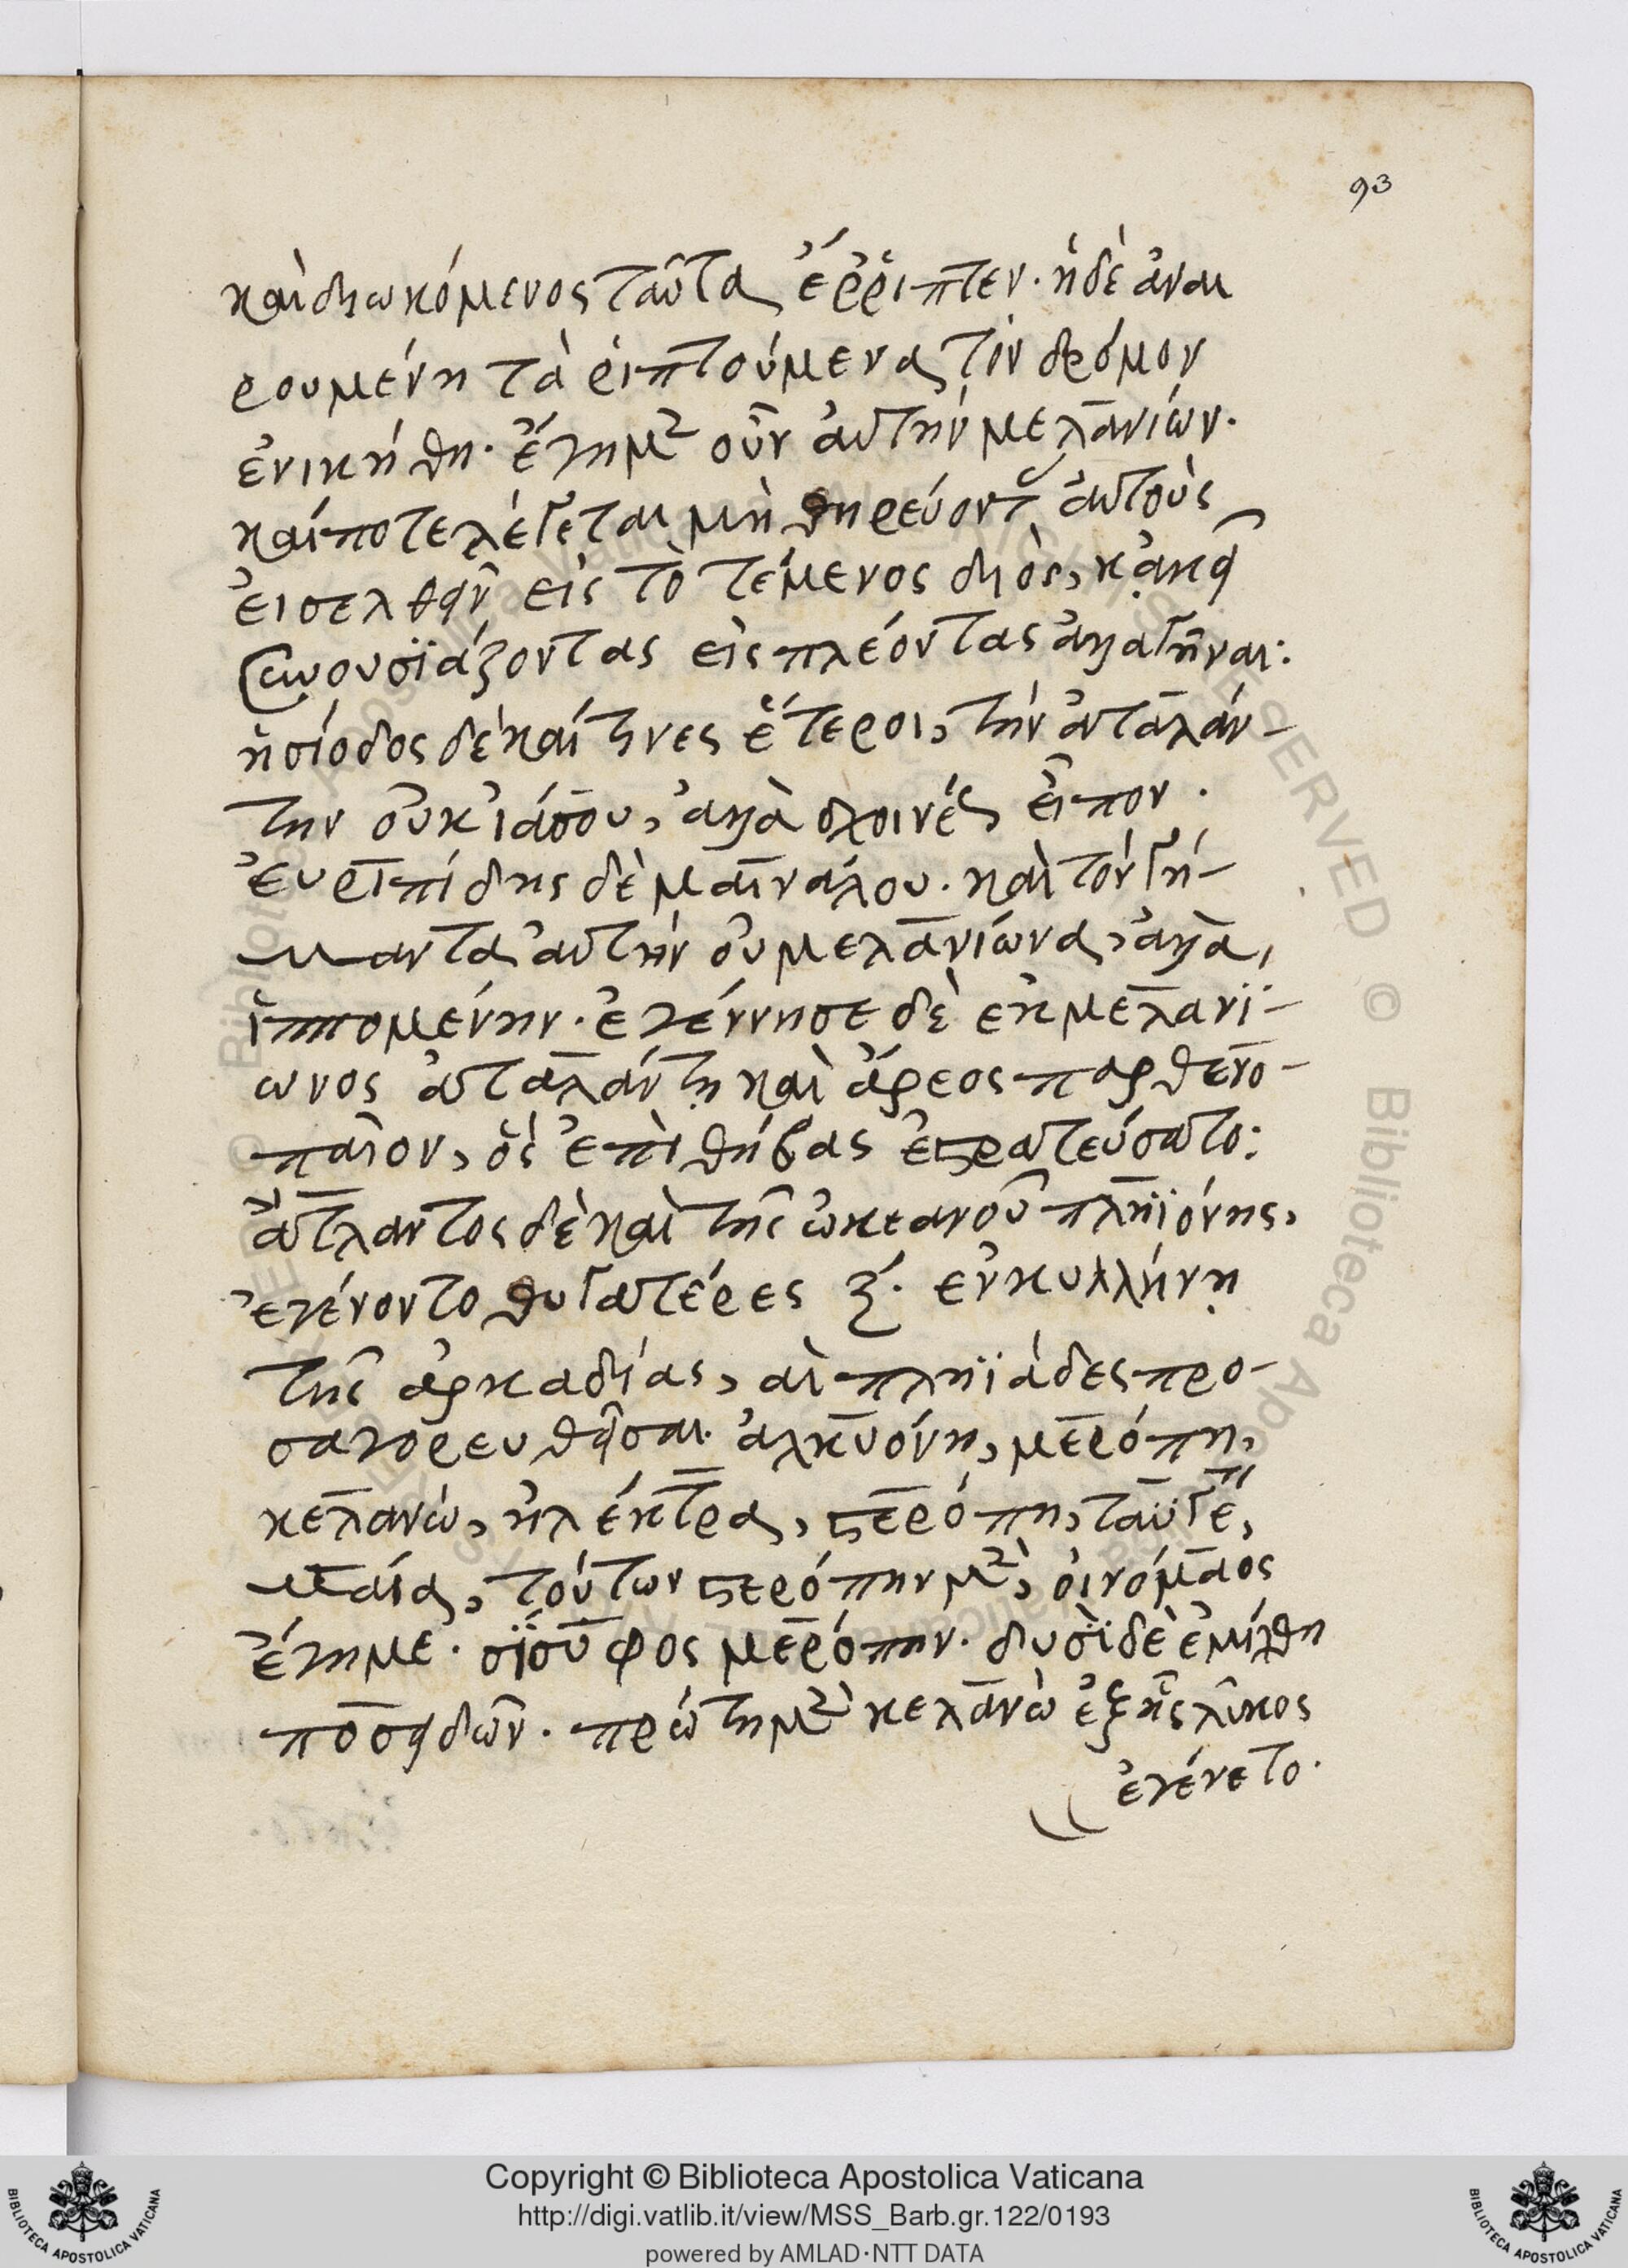 93
καὶ διωκόμενος ταῦτα ἔρριπτεν· ἡ δὲ ἀναι
ρουμένη τὰ ῥιπτούμενα τὸν δρόμον
ἐνικήθη· ἔγημ² οὖν αὐτὴν μελανίων·
καί ποτε λέγεται μὴ θηρεύοντ αὐτοὺς
εἰσελθεῖν εἰς τὸ τέμενος διὸς, κἀκεῖ
συνουσϊάζοντας εἰς πλέοντας ἀλλαγῆναι:
ἡσίοδος δὲ καί τινες ἕτεροι, τὴν ἀταλάν-
την οὐκ ἰάσου, ἀλλὰ σχοινέως εἶπον·
εὐριπίδης δὲ μαινάλου· καὶ τὸν γή-
μαντα αὐτὴν οὐ μελανίωνα, ἀλλὰ,
ἱππομένην· ἐγέννησε δὲ ἐκ μελανϊ-
ωνος ἀταλάντη καὶ ἄρεος παρθενο-
παῖον, ὃς ἐπὶ θήβας ἐστρατεύσατο:
ἄτλαντος δὲ καὶ τῆς ὠκεανοῦ πληϊόνης,
ἐγένοντο θυγατέρες ζ· ἐν κυλλήνῃ
τῆς ἀρκαδίας, αἱ πληϊάδες προ-
σαγορευθεῖσαι· ἀλκυόνη, μερόπη,
κελανὼ, ἠλέκτρα, στερόπη, ταϋγέτη,
μαῖα, τούτων στερόπην μ², οἰνόμαος
ἔγημε· σίσυφος μερόπην· δυσῒ δὲ ἐμίχθη
ποσειδῶν· πρώτη μ² κελανὼ ἐξ ἧς λύκος
ἐγένετο·
Copyright © Biblioteca Apostolica Vaticana
http://digi.vatlib.it/view/MSS_Barb.gr.122/0193
powered by AMLAD·NTT DATA